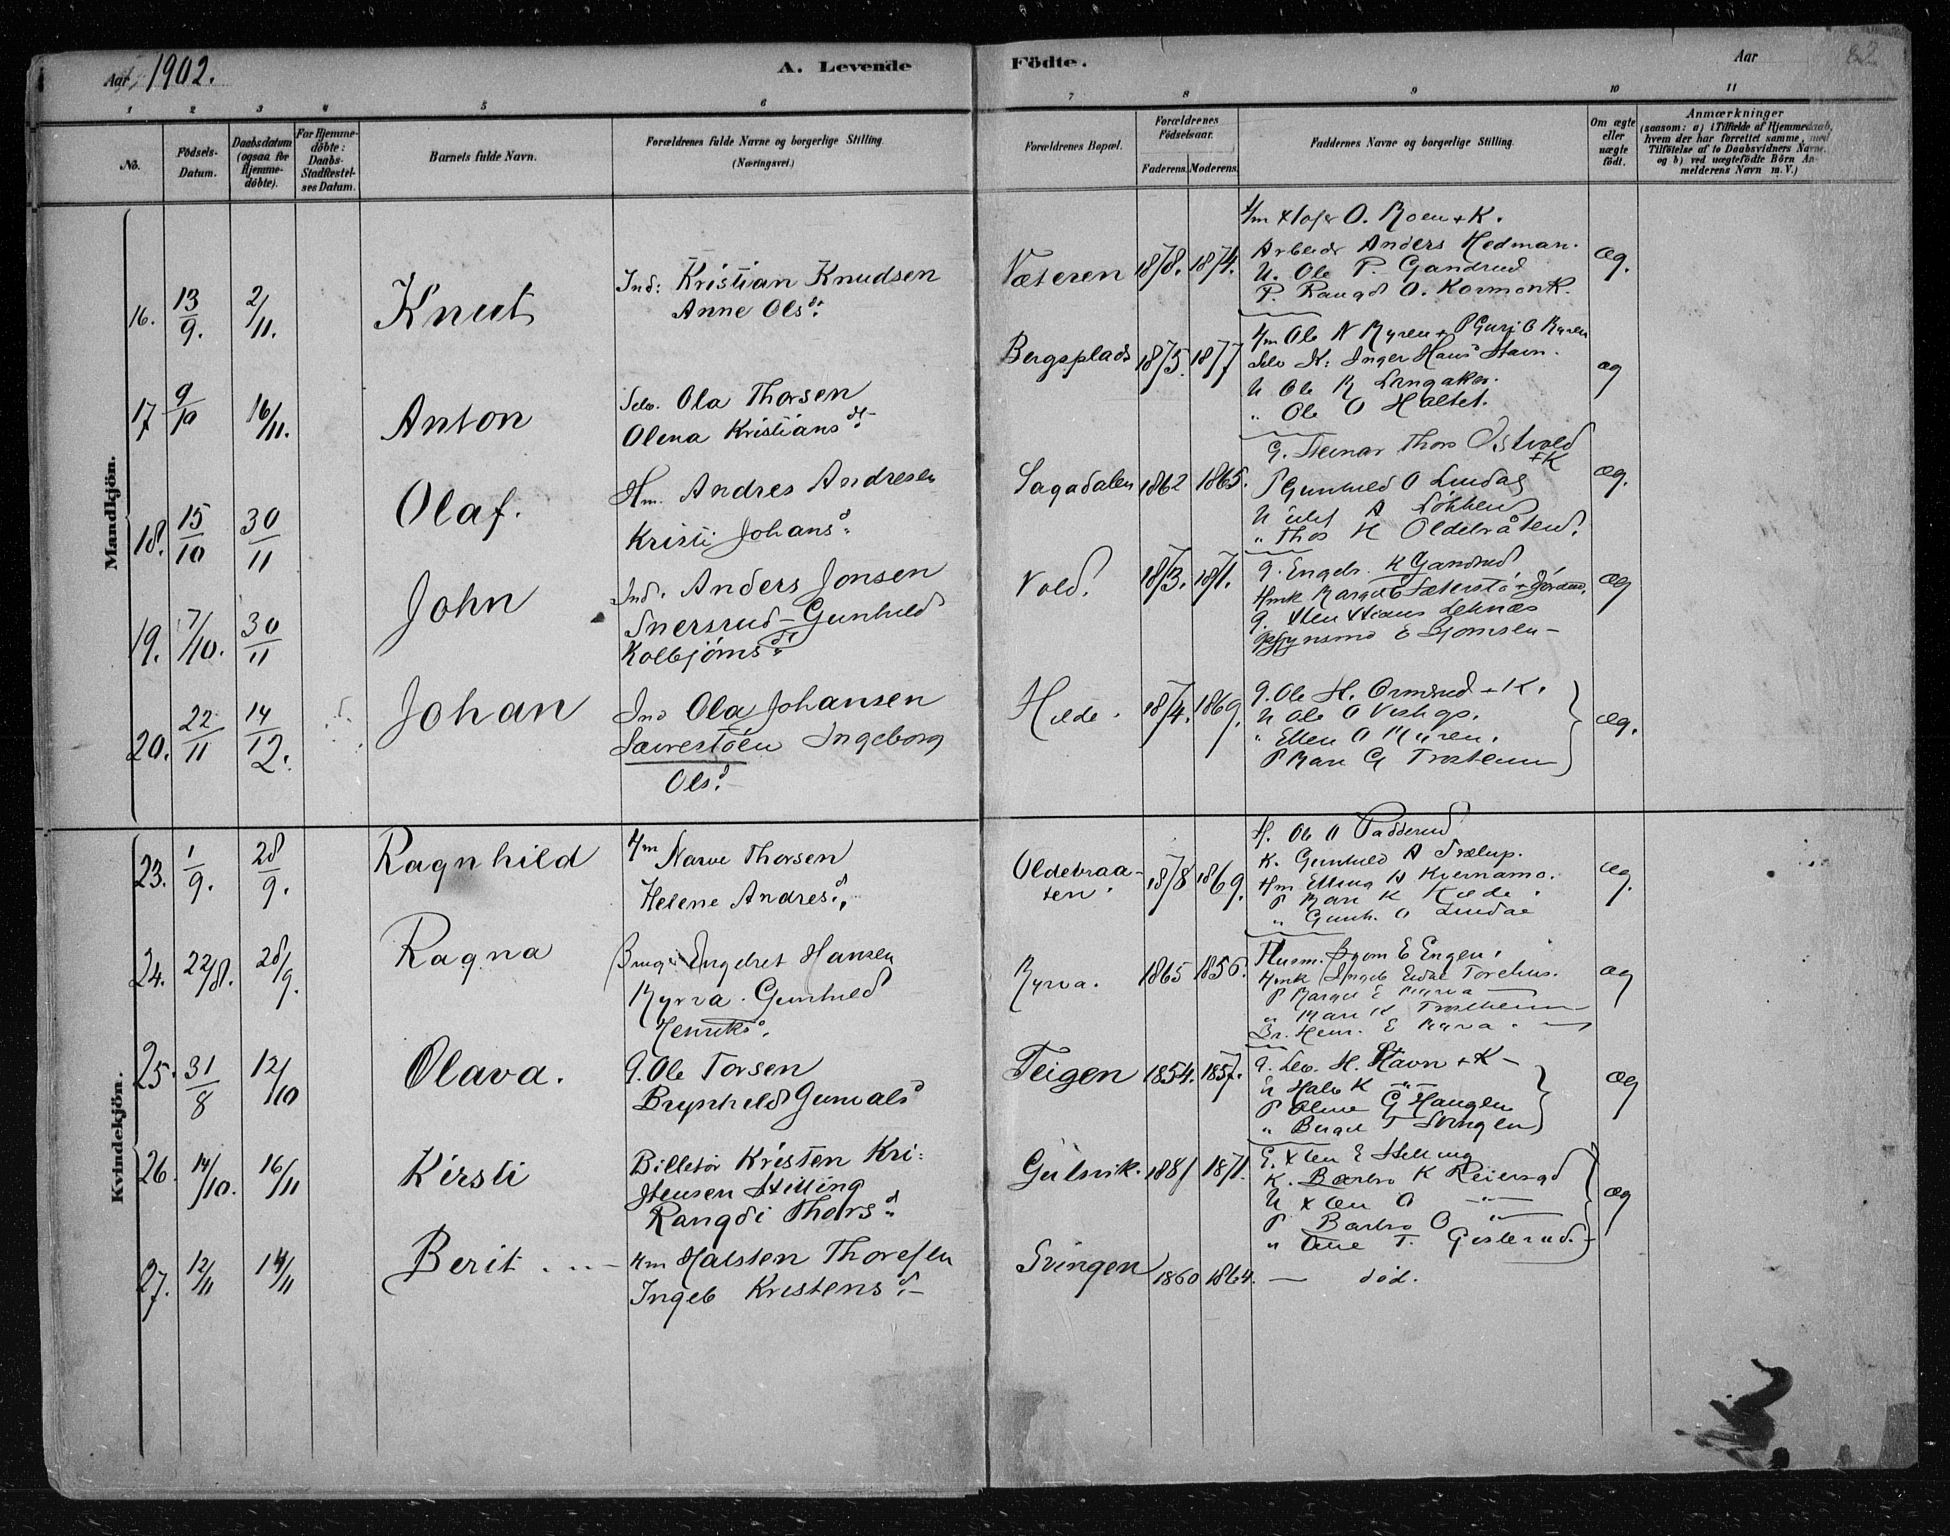 Aar 1902.
A. Levende
Födte.
Aar
82
1 2 3 4 5 6 7 8 9 10 11
No.
Födsels-Datum.
Daabsdatum (ogsaa for Hjemme-döbte).
For Hjemme-döbte: Daabs-Stadfæstel-ses Datum.
Barnets fulde Navn.
Forældrenes fulde Navne og borgerlige Stilling
(Næringsvei.)
Forældrenes Bopæl.
Forældrenes Födselsaar.
Faderens. Moderens.
Faddernes Navne og borgerlige Stilling.
Om ægte eller uægte födt.
Anmærkninger
(saasom: a) i Tilfælde af Hjemmedaab,
hvem der har forrettet samme, med
Tilföielse af to Daabsvidners Navne,
og b) ved uægtefödte Börn An-
melderens Navn m. V.)
Mandkjön.
16. 13/9. 2/11. Knut
Ind: Kristian Knudsen
Anne Olsd.
Næteren 1878. 1874.
O. Roen + K.
Arbeider Anders Hedman.
U. Ole P. Gandrud
P. Rangd O.
Æg.
17 9/10 16/11. Anton
Selv. Ola Thorsen
Olena Kristiansdt
Bergsplads 1875. 1877
Hm Ole N Myren + P Guri O Myren
Inger Hans
U Ole R Langaker.
" Ole O Haltet.
Æg
18. 15/10 30/11 Olaf.
Hm. Andres Andresen
Kristi Johansd.
Sagadalen 1862 1865.
G. Steinar Thors Østvold
+K
P Gunhild O Lindas
U A Løkken
" Thos H Oldebråten.
Æg.
19. 7/10. 30/11 John
Ind. Anders Jonsen
Snersrud - Gunhild
Kolbjørnsdt
Vold. 1873. 1871.
G. Engebr. K Gandrud
Æg
20. 22/11 14/12. Johan
Ind Ola Johansen
Sævrestøen Ingeborg
Olsd.
Hilde. 1874. 1869.
G. Ole H. Ormsrud + K.
U Ole O
" Ellen O Myren.
P Mari G Trostheim
Æg.
Kvindekjön.
23. 1/9. 28/9. Ragnhild
Hm Narve Thorsen
Helene Andresd.
Oldebraa-
ten. 1878 1869.
H. Ole O Padderud
K. Gunhild A Trælup.
Hm Elling A Kvernamo.
P Mari K Hilde
" Gunh. O Lindas
Æg.
24. 22/8. 28/9. Ragna
Bruger Engebret Hansen
Myrva. Gunhild
Henriksd.
Myrva. 1865 1856.
Husm. Bjørn E Engen.
Hmk Ingeb Torehus.
P Margit E Myrva
" Mari K Trostheim
Br. Henr. E Myrva.
Æg
25. 31/8 12/10 Olava.
G. Ole Torsen
Brynhild Gunvalsd
Teigen 1854. 1857.
G. Lev. H. Stavn + K -
U Halv K "
P Oline G Haugen
" Berget T Svingen
Æg
26. 14/10. 16/11 Kirsti
Billetør Kristen Kri-
stensen Stilling
Rangdi Thorsd.
Gulsvik. 1881 1871.
G. Xten E Stilling
K. Barbro K Reiersgd
U Xten O "
P Barbro O "
" Ane T. Gislerud.
Æg
27. 12/11 14/11 Berit
Hm Halsten Thoresen
Ingeb Kristensd.
Svingen 1860 1864. — død.